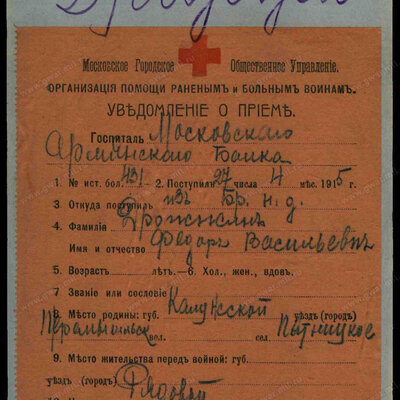 Московское Городское Общественное Управленiе.
ОРГАНИЗАЦIЯ ПОМОЩИ РАНЕНЫМЪ и БОЛЬНЫМЪ ВОИНАМЪ.
УВѢДОМЛЕНIЕ О ПРIЕМѢ.
Госпиталь Московскаго
Армянскаго Банка
1. № ист. бол. 431 — 2. Поступилъ 27 числа 4 мѣс. 1915 г.
3. Откуда поступилъ изъ Бр. п. д.
4. Фамилiя Дрожжинъ
Имя и отчество Федоръ Васильевъ
5. Возрастъ лѣтъ.—6. Хол., жен., вдов.
7. Званiе или сословiе
8. Мѣсто родины: губ. Калужской уѣздъ (городъ)
Перемышльск вол. сел. Пятницкое
9. Мѣсто жительства передъ войной: губ.
уѣздъ (городъ) Рядовой